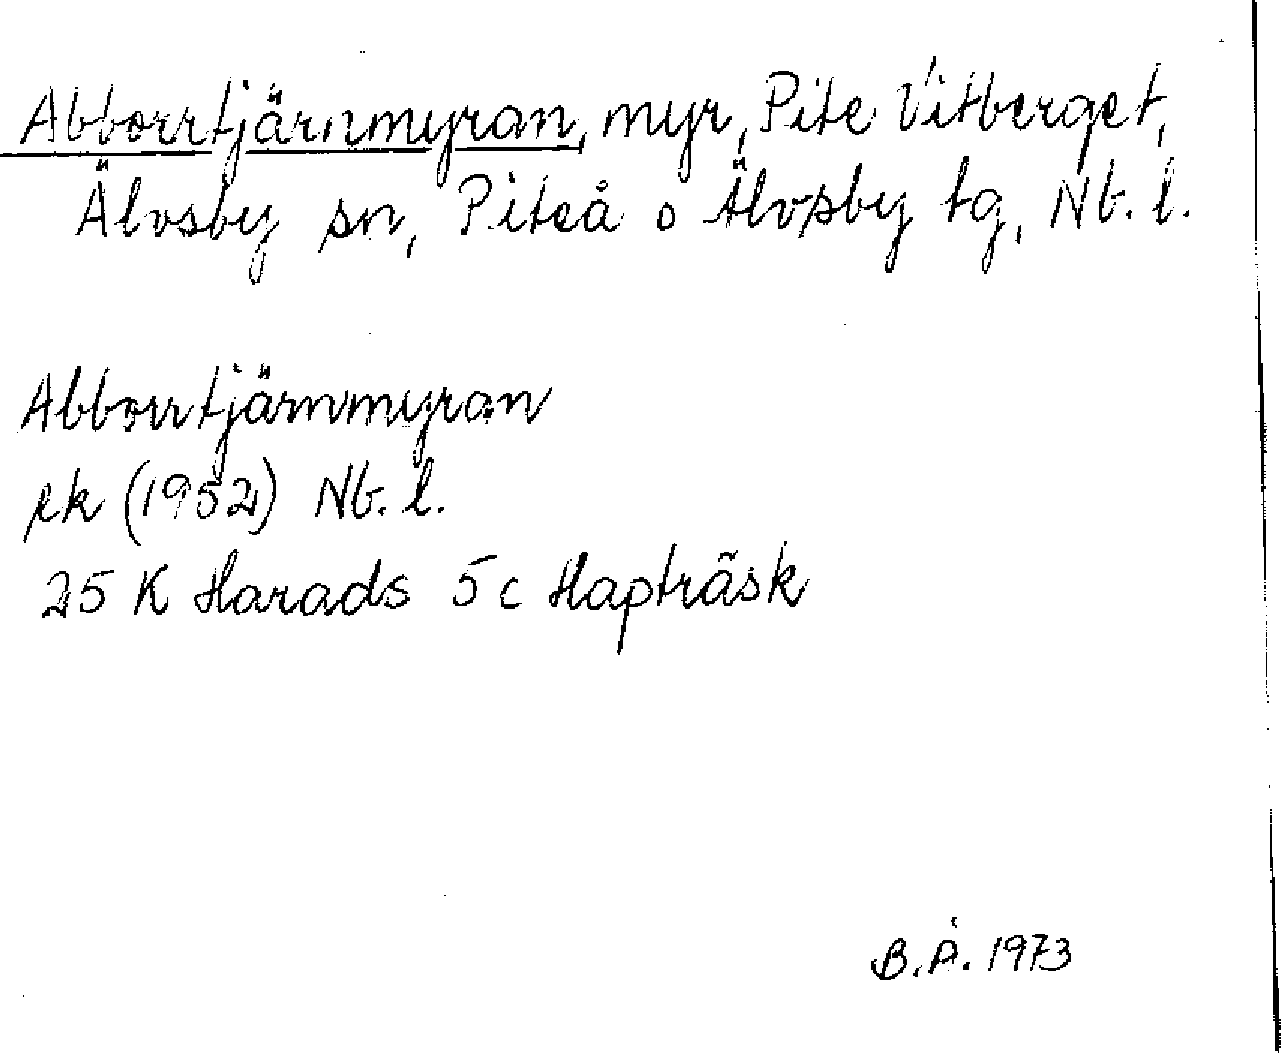 Abborrtjärnmyran, myr, Pite Vitberget,
Älvsby sn, Piteå o Älvsby tg, Nb. l.
Abborrtjärnmyran
rk (1952) Nb. l.
25 K Harads 5 c Hapträsk
B.Å. 1973